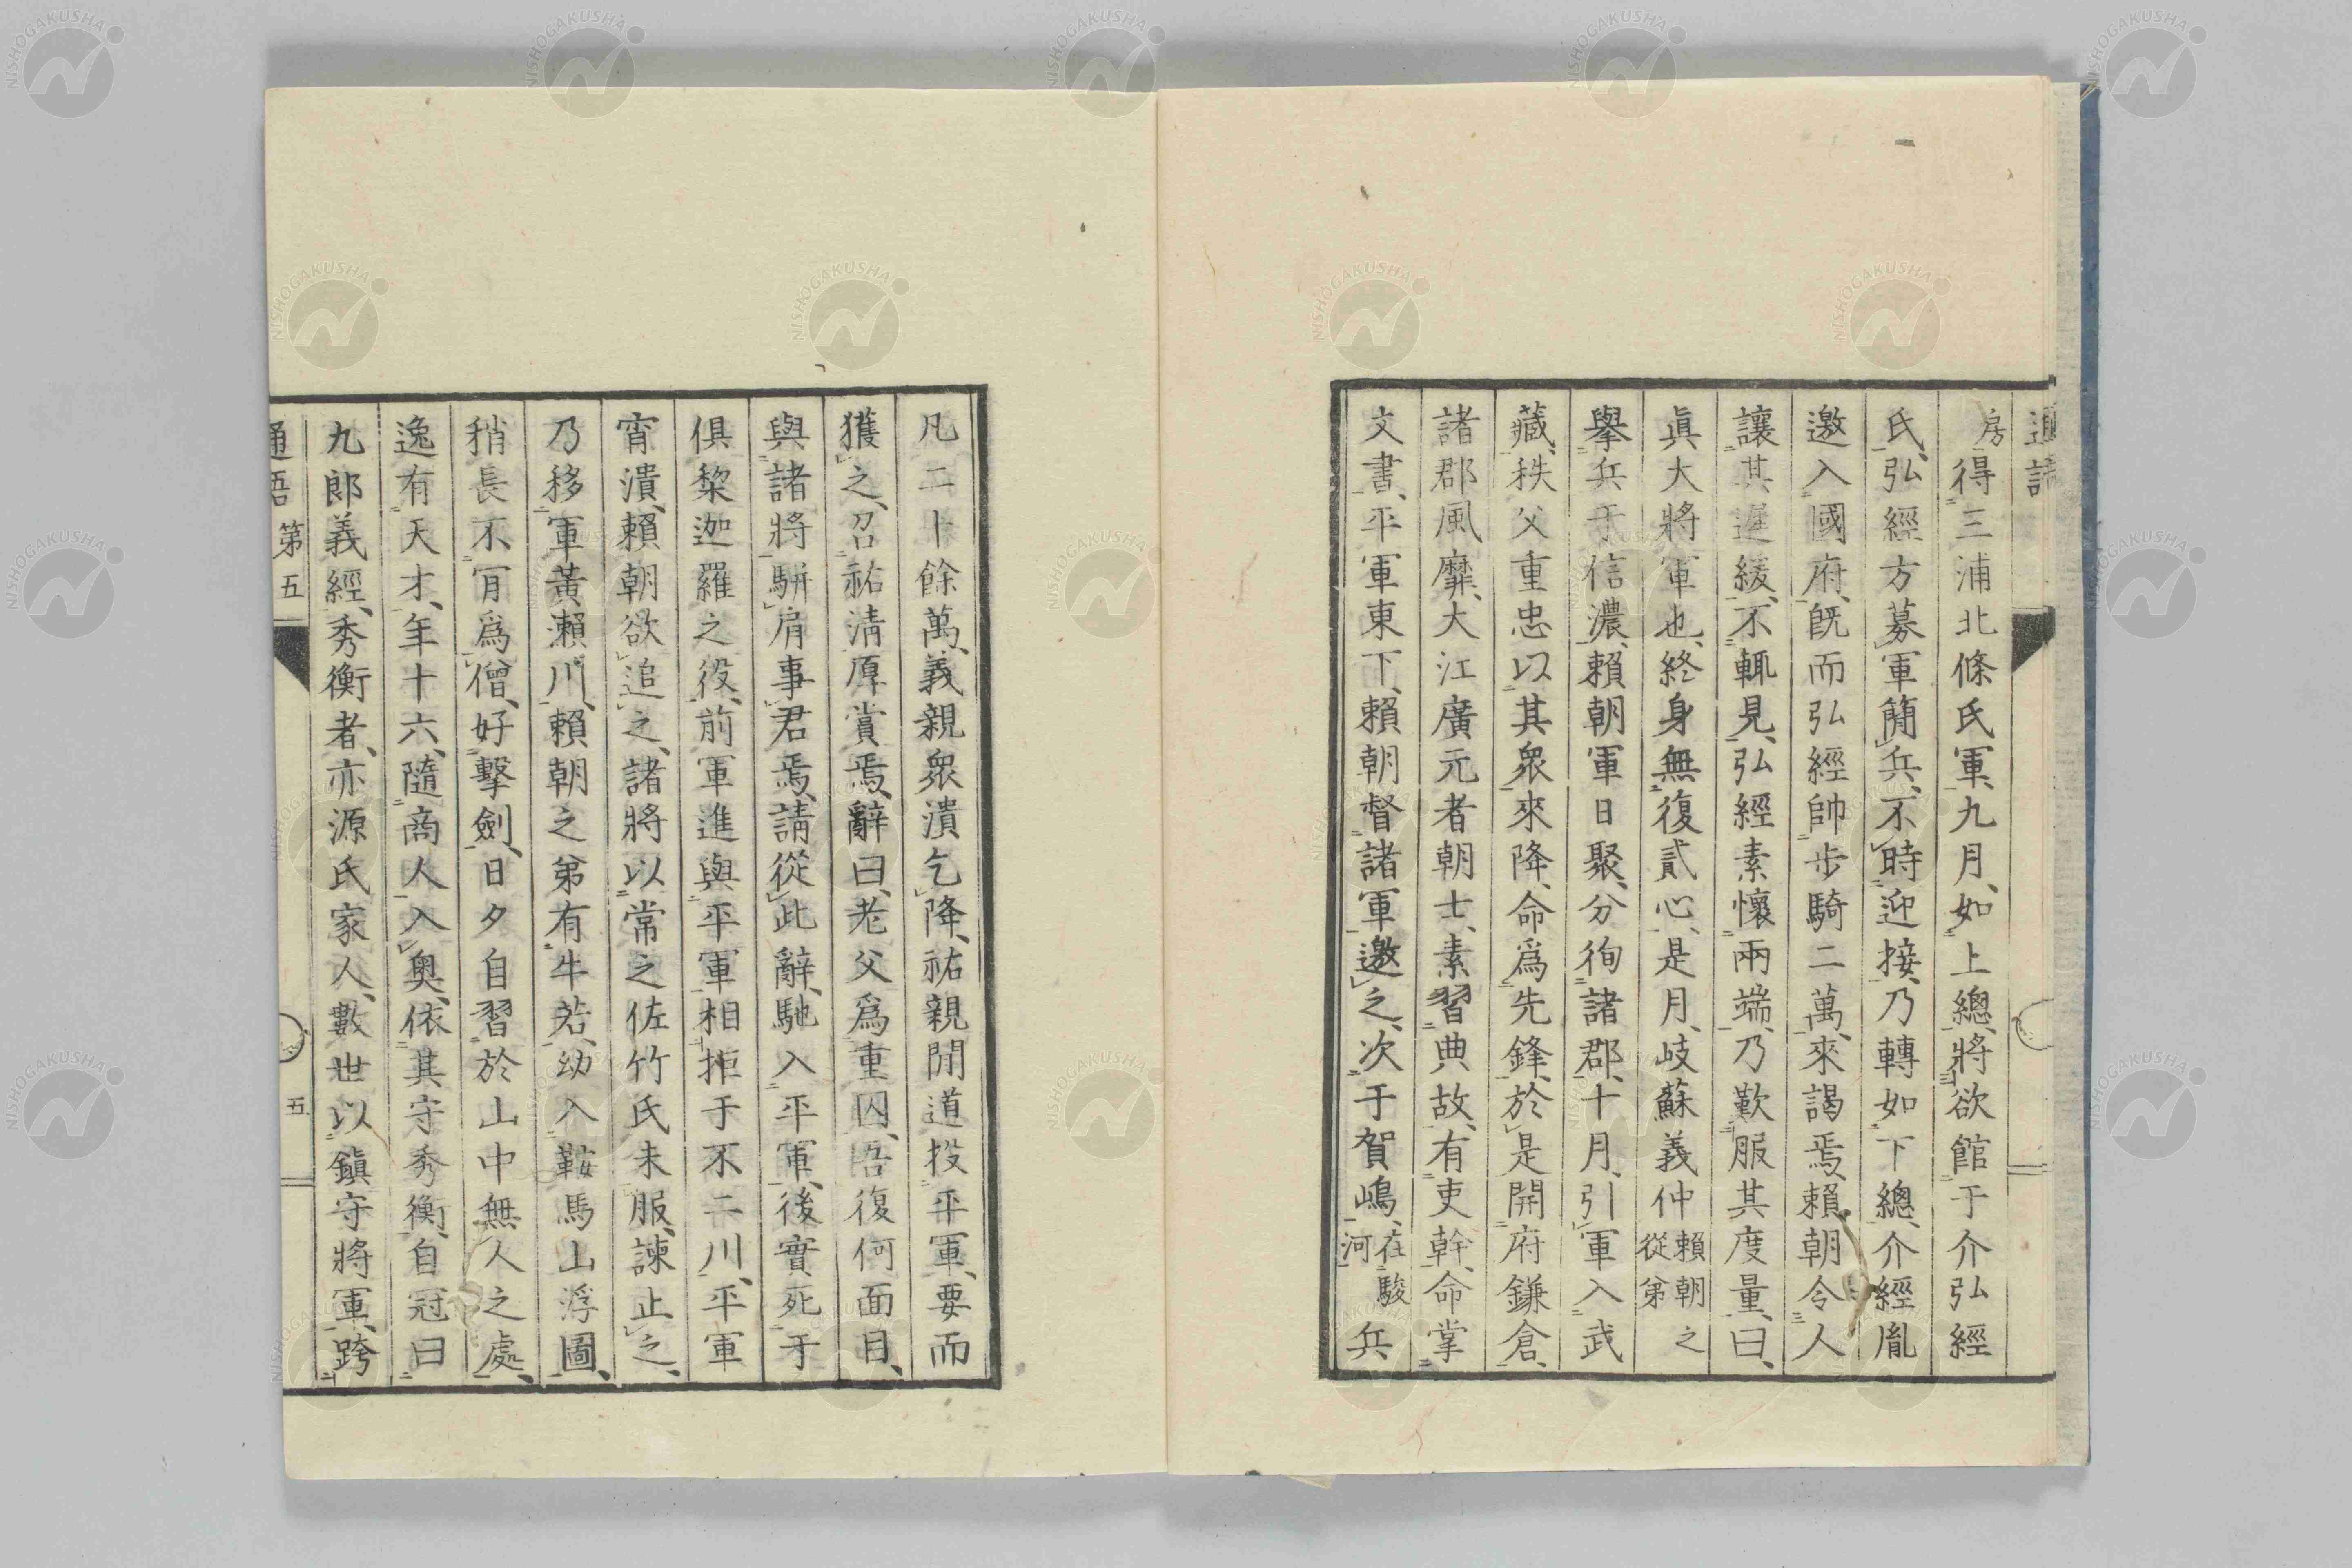 通語
房得三浦北條氏軍、九月、如上總、將欲館于介弘經
氏、弘經方募軍簡兵、不時迎接、乃轉如下總、介經胤
邀入國府、既而弘經帥步騎二萬、來謁焉、賴朝令人
讓其遲緩、不輒見、弘經素懷兩端、乃歎服其度量、曰、
眞大將軍也、終身無復貳心、是月、岐蘇義仲賴朝之從弟
擧兵于信濃、賴朝軍日聚、分徇諸郡、十月、引軍入武
藏、秩父重忠以其衆來降、命爲先鋒、於是開府鎌倉、
諸郡風靡、大江廣元者朝士、素習典故、有吏幹、命掌
文書、平軍東下、賴朝督諸軍邀之、次于賀嶋、在駿河兵
凡二十餘萬、義親衆潰乞降、祐親閒道投平軍、要而
獲之、召祐淸厚賞焉、辭曰、老父爲重囚、吾復何面目、
與諸將駢肩事君焉、請從此辭、馳入平軍、後實死于
俱棃迦羅之役、前軍進與平軍相拒于不二川、平軍
宵潰、賴朝欲追之、諸將以常之佐竹氏未服、諫止之、
乃移軍黃瀨川、賴朝之弟有牛若、幼入鞍馬山浮圖、
稍長不肎爲僧、好擊劍、日夕自習於山中無人之處、
逸有天才、年十六、隨商人入奧、依其守秀衡、自冠曰
九郎義經、秀衡者、亦源氏家人、數世以鎭守將軍、跨
通語 第五 五
NISHOGAKUSHA